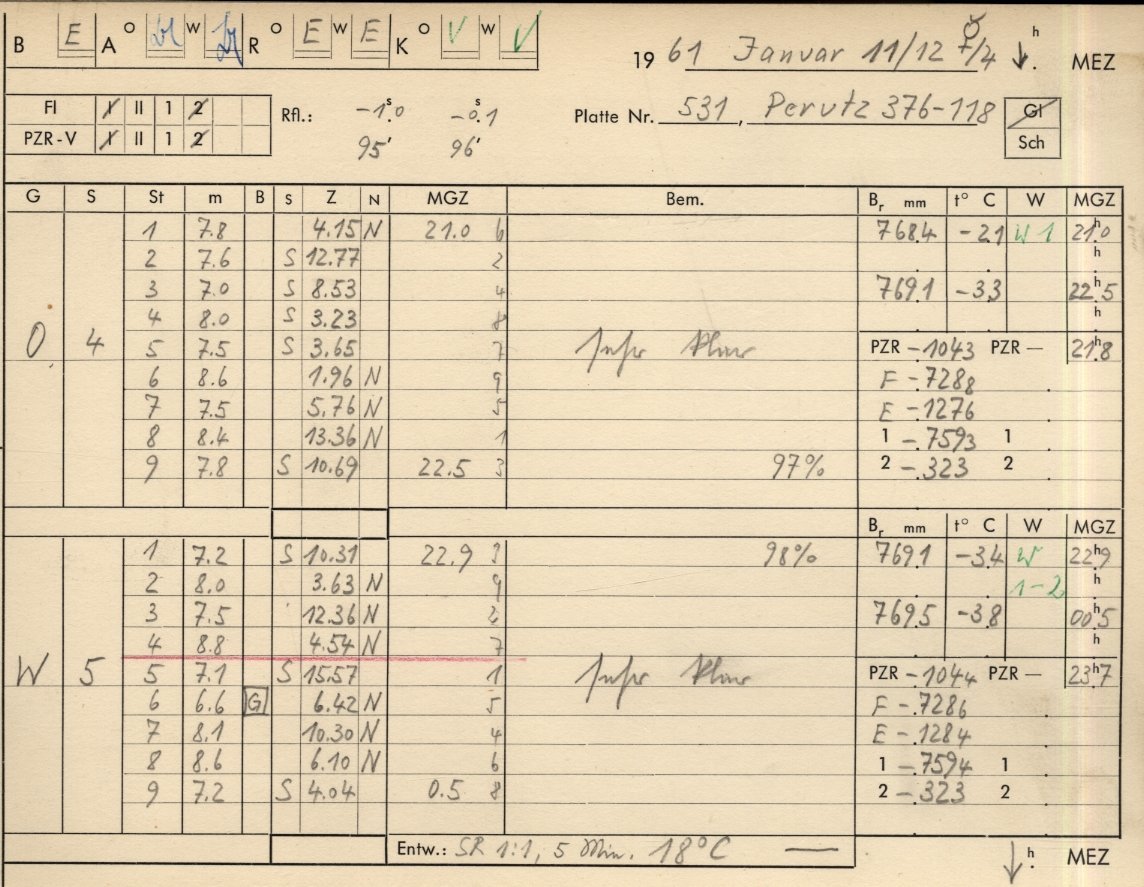 B E A o w R o E w E K o V w V
19 61 Januar 11/12 7/4 h MEZ
Fl I II 1 2
PZR-V I II 1 2
Rfl.: -1.s0 -0.s1
95' 96'
Platte Nr. 531, Perutz 376-118 Gl
Sch
G S St m B S Z N MGZ Bem. Br mm t° C W MGZ
1 7.8 4.15 N 21.0 6 768.4 -2.1 W 1 21h0
2 7.6 S 12.77 2 h
3 7.0 S 8.53 4 769.1 -3.3 22h5
4 8.0 S 3.23 8 h
O 4 5 7.5 S 3.65 7 sehr klar PZR -.1043 PZR - 21h8
6 8.6 1.96 N 9 F -.7288
7 7.5 5.76 N 5 E -.1276
8 8.4 13.36 N 1 1 -.7593 1
9 7.8 S 10.69 22.5 3 97% 2 -.323 2
Br mm t° C W MGZ
1 7.2 S 10.31 22.9 3 98% 769.1 -3.4 W 22h9
2 8.0 3.63 N 9 1-2 h
3 7.5 12.36 N 2 769.5 -3.8 00h5
4 8.8 4.54 N 7 h
W 5 5 7.1 S 15.57 1 sehr klar PZR -.1044 PZR - 23h7
6 6.6 G 6.42 N 5 F -.7286
7 8.1 10.30 N 4 E -.1284
8 8.6 6.10 N 6 1 -.7594 1
9 7.2 S 4.04 0.5 8 2 -.323 2
Entw.: SR 1:1, 5 Min. 18°C — h MEZ